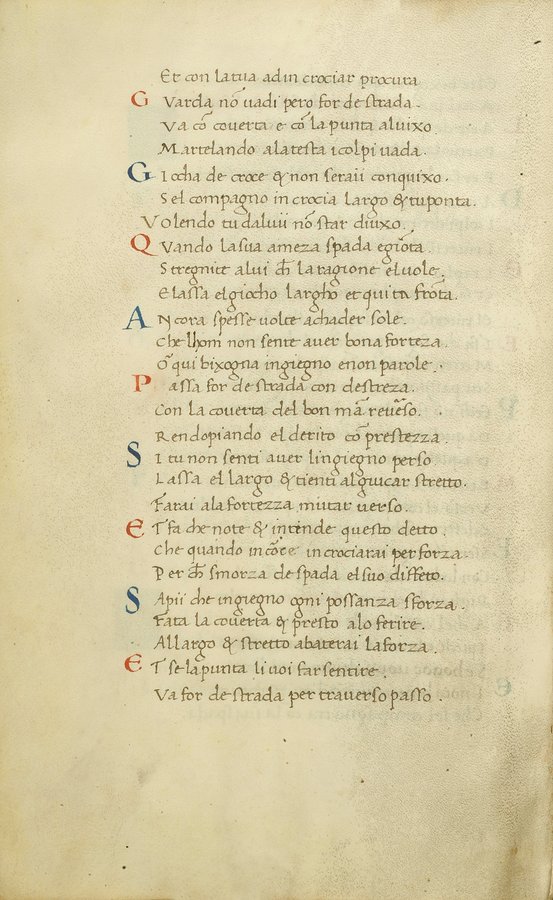 Et con la tua ad in crociar procura
Guarda nõ uadi pero for de strada.
Va cõ couerta e cõ la punta al uixo
Martelando ala testa i colpi uada.
Giocha de croce & non seraii conquixo.
S el compagno in crocia largo & tu ponta.
Volendo tu da lui nõ star diuixo.
Quando la sua a meza spada e giõta
Stregnite a lui ch̃ la ragione el uole.
E lassa el giocho largho et qui ta frõta.
Ancora spesse uolte achader sole.
Che lhom non sente auer bona forteza.
O qui bixogna ingiegno e non parole.
Passa for de strada con destreza.
Con la couerta del bon mã reuẽso.
Rendopiando el derito cõ prestezza.
Si tu non senti auer lingiegno perso
Lassa el largo & tienti al giucar stretto.
Farai ala fortezza mutar uerso.
Et fa che note & intende questo detto.
Che quando in crociarai per forza.
Per ch̃ smorza de spada el suo diffeto.
Sapii che ingiegno ogni possanza sforza.
Fata la couerta & presto alo ferire.
Al largo & stretto abaterai la forza.
Et se la punta li uoi far sentire.
Va for de strada per trauerso passo.